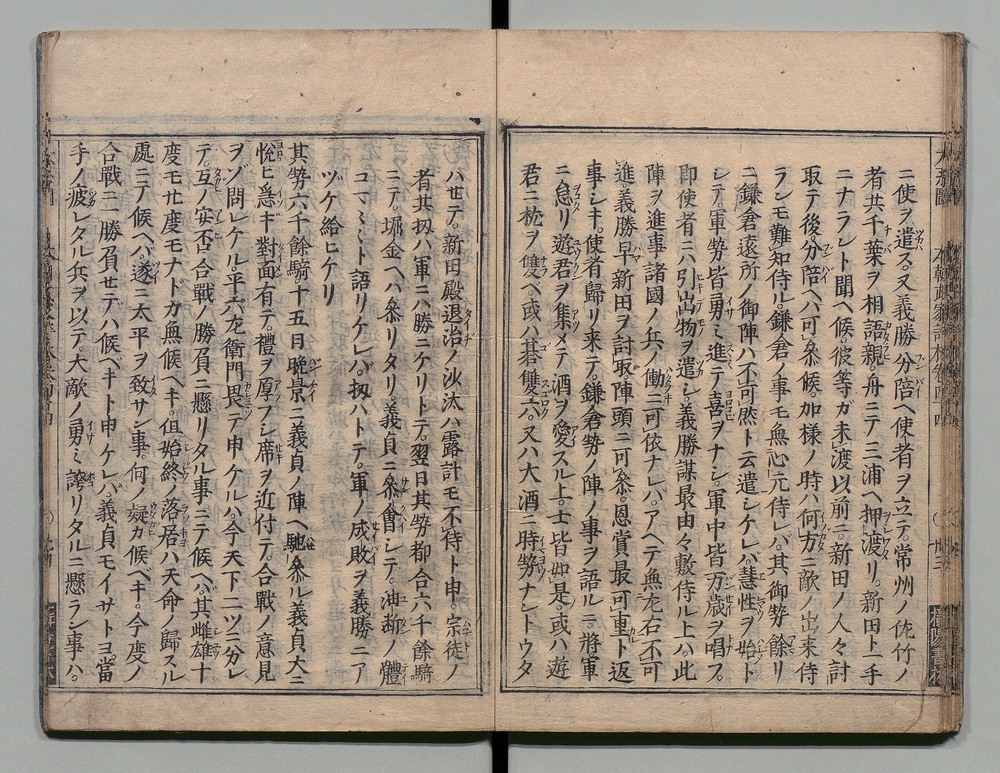 ニ使ヲ遣ス。又義勝分陪ヘ使者ヲ立テ。常州ノ佐竹ノ
者共千葉ヲ相語親。舟ニテ三浦ヘ押渡リ。新田ト一手
ニナラント聞ヘ候。彼等ガ未渡以前ニ。新田ノ人々討
取テ後。分陪ヘハ可参候。加様ノ時ハ何方ニ敵ノ出来侍
ランモ難知侍ル。鎌倉ノ事モ無心元侍レバ。其御勢餘リ
ニ鎌倉遠所ノ御陣ハ不可然ト云遣シケレバ。慧性ヲ始ト
シテ軍勢皆勇ミ進テ喜ヲナシ。軍中皆万歳ヲ唱フ。
即使者ニハ引出物ヲ遣シ義勝謀最由々敷侍ル上ハ此
陣ヲ進事諸國ノ兵ノ働ニ可依ナレバ。アヘテ無左右不可
進。義勝早新田ヲ討取陣頭ニ可参。恩賞最可重ト返
事シキ。使者歸リ来テ。鎌倉勢ノ陣ノ事ヲ語ルニ。將軍
ニ怠リ遊君ヲ集メテ酒ヲ愛スル上。士皆如是。或ハ遊
君ニ枕ヲ雙ヘ或ハ碁雙六。又ハ大酒ニ時勢ナントウタ
ハセテ。新田殿退治ノ沙汰ハ露計モ不待ト申。宗徒ノ
者其扨ハ軍ニハ勝ニケリトテ。翌日其勢都合六千餘騎
ニテ。堀金ヘハ参リタリ。義貞ニ参會シテ。油断ノ體
コマミト語リケレバ。扨ハトテ。軍ノ成敗ヲ義勝ニア
ツケ給ヒケリ
其勢六千餘騎十五日晩景ニ義貞ノ陣ヘ馳参ル義貞大ニ
悦ヒ急ギ對面有テ。禮ヲ厚フシ席ヲ近付テ。合戰ノ意見
ヲゾ問レケル。平六左衛門畏テ申ケルハ。今天下二ツニ分レ
テ。互ノ安否合戰ノ勝負ニ懸リタル事ニテ候ヘバ。其雌雄十
度モ廿度モナトカ無候ヘキ。但始終ノ落居ハ天命ノ歸スル
處ニテ候ヘバ。遂ニ太平ヲ致サン事。何ノ疑カ候ヘキ。今度ノ
合戰ニ勝負セテハ候ヘキト申ケレバ。義貞モイサトヨ。當
手ノ疲レタル兵ヲ以テ。大敵ノ勇ミ誇リタルニ懸ラン事ハ。